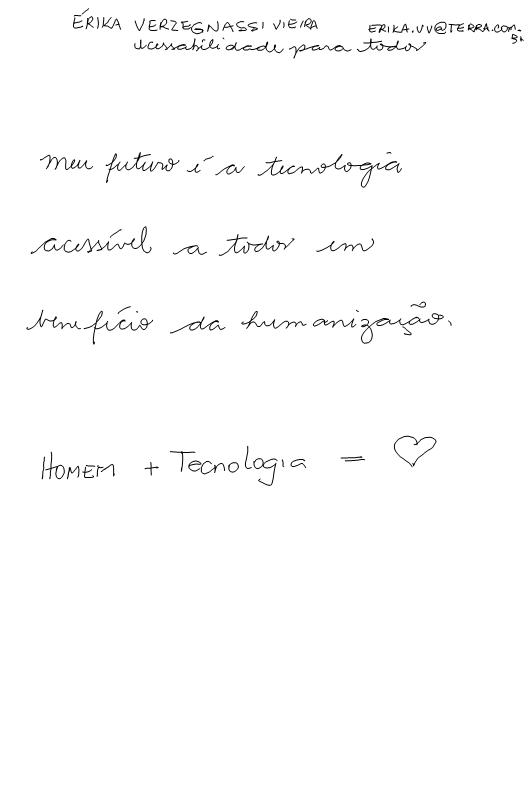 ÉRIKA VERZEGNASSI VIEIRA ERIKA.VV@TERRA.COM.BR
acessabilidade para todos
Meu futuro é a tecnologia
acessível a todos em
benefício da humanização.
HOMEM + Tecnologia = ♡